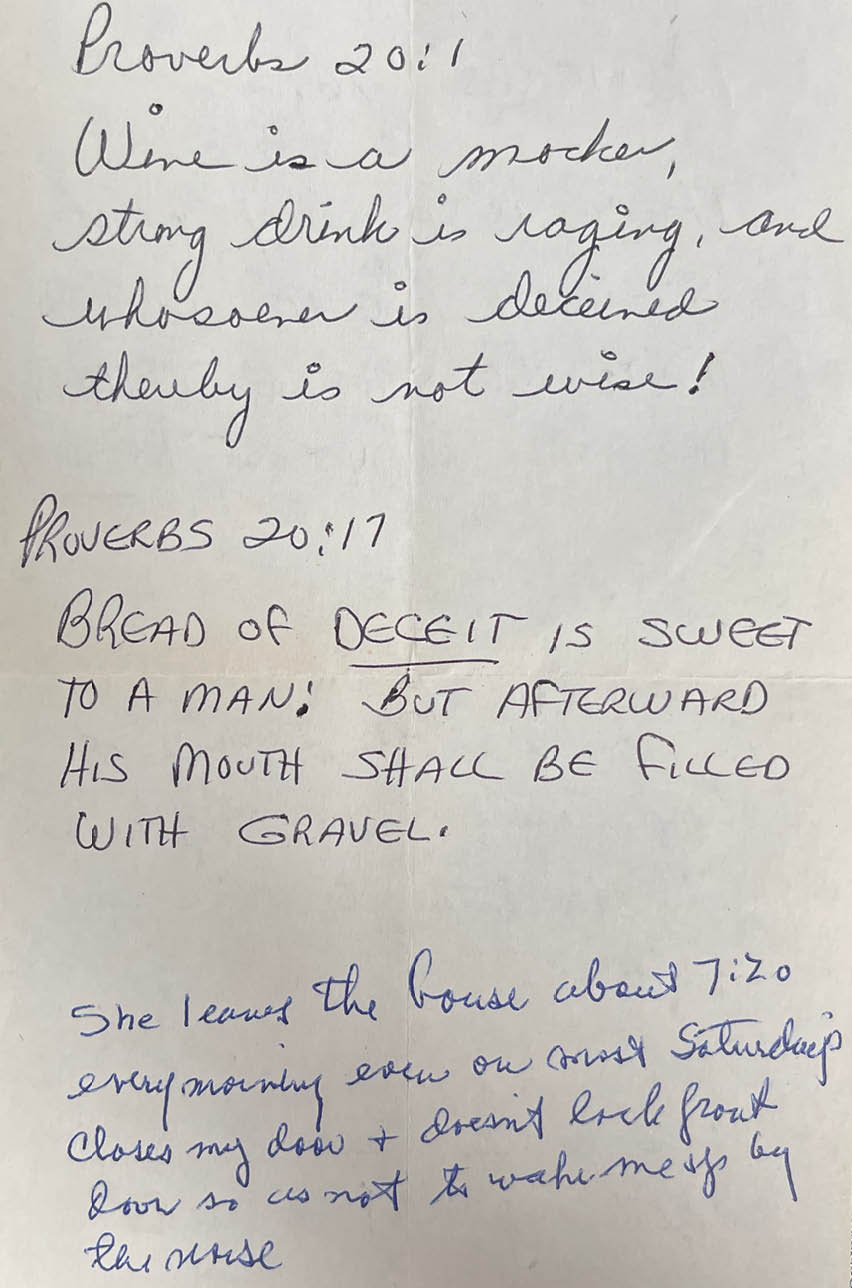 Proverbs 20:1
Wine is a mocker,
strong drink is raging, and
whosoever is deceived
thereby is not wise!
PROVERBS 20:17
BREAD OF DECEIT IS SWEET
TO A MAN: BUT AFTERWARD
HIS MOUTH SHALL BE FILLED
WITH GRAVEL.
She leaves the house about 7:20
every morning even on most Saturdays
closes my door + doesn't lock front
door so as not to wake me up by
the noise